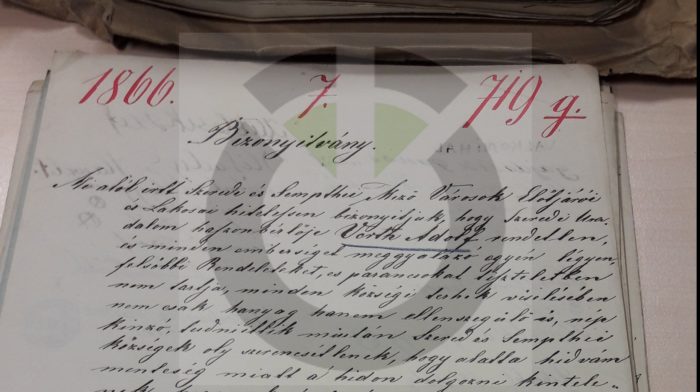 1866. 7. 719 g.
Bizonyitvány.
Mi alól irtt Szeredi és Sempthei Mező Városok Elöljárói
és Lakosai hitelesen bizonyitjuk, hogy Szeredi Ura-
dalom haszonbérlője Vörth Adolf rendetlen,
és minden emberiséget meggyalázó egyén légyen
felsőbbi Rendeleteket, és parancsokat tiszteletben
nem tartja, minden községi terhek viselésében
nem csak hanyag hanem ellenszegülő is, népe
kinzó, tudniillik miután Szered és Sempthei
községek oly szerencsétlenek, hogy alatta hidvám
mentesség miatt a hidon dolgozni kintele-